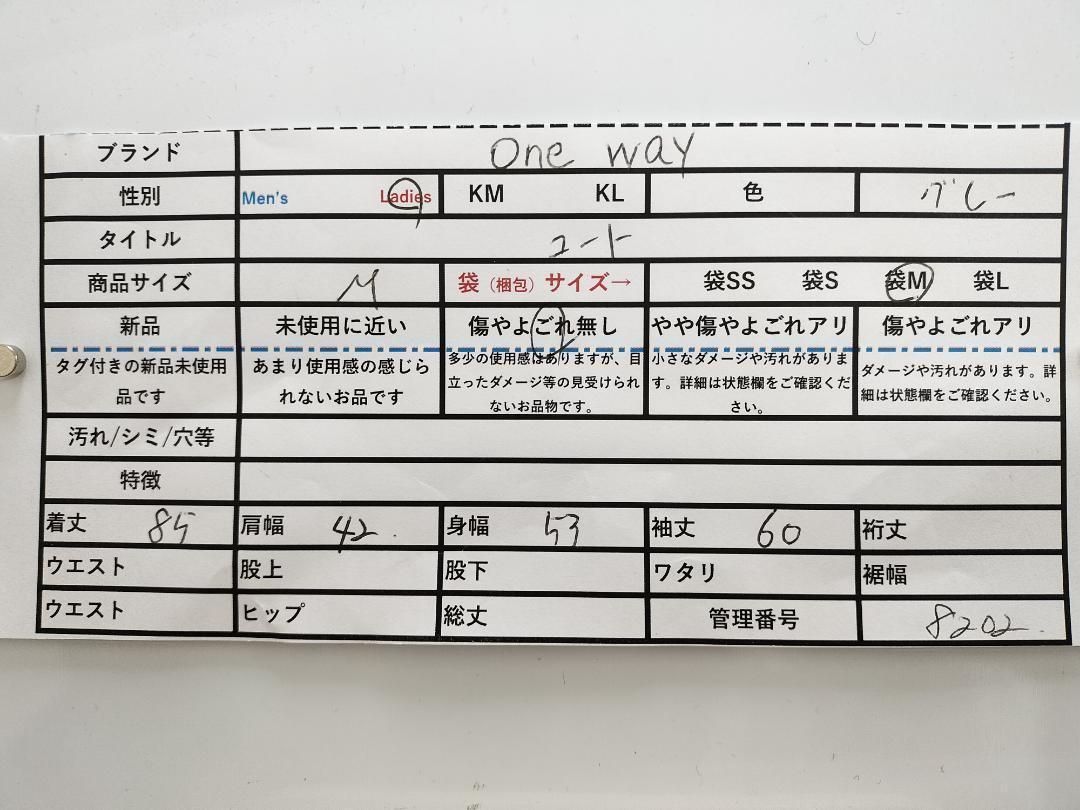 ブランド One way
性別 Men's Ladies KM KL 色 グレー
タイトル コート
商品サイズ M 袋（梱包）サイズ→ 袋SS 袋S 袋M 袋L
新品 未使用に近い 傷やよごれ無し やや傷やよごれアリ 傷やよごれアリ
タグ付きの新品未使用品です あまり使用感の感じられないお品です 多少の使用感はありますが、目立ったダメージ等の見受けられないお品物です。 小さなダメージや汚れがあります。詳細は状態欄をご確認ください。 ダメージや汚れがあります。詳細は状態欄をご確認ください。
汚れ/シミ/穴等
特徴
着丈 85 肩幅 42 身幅 53 袖丈 60 裄丈
ウエスト 股上 股下 ワタリ 裾幅
ウエスト ヒップ 総丈 管理番号 8202